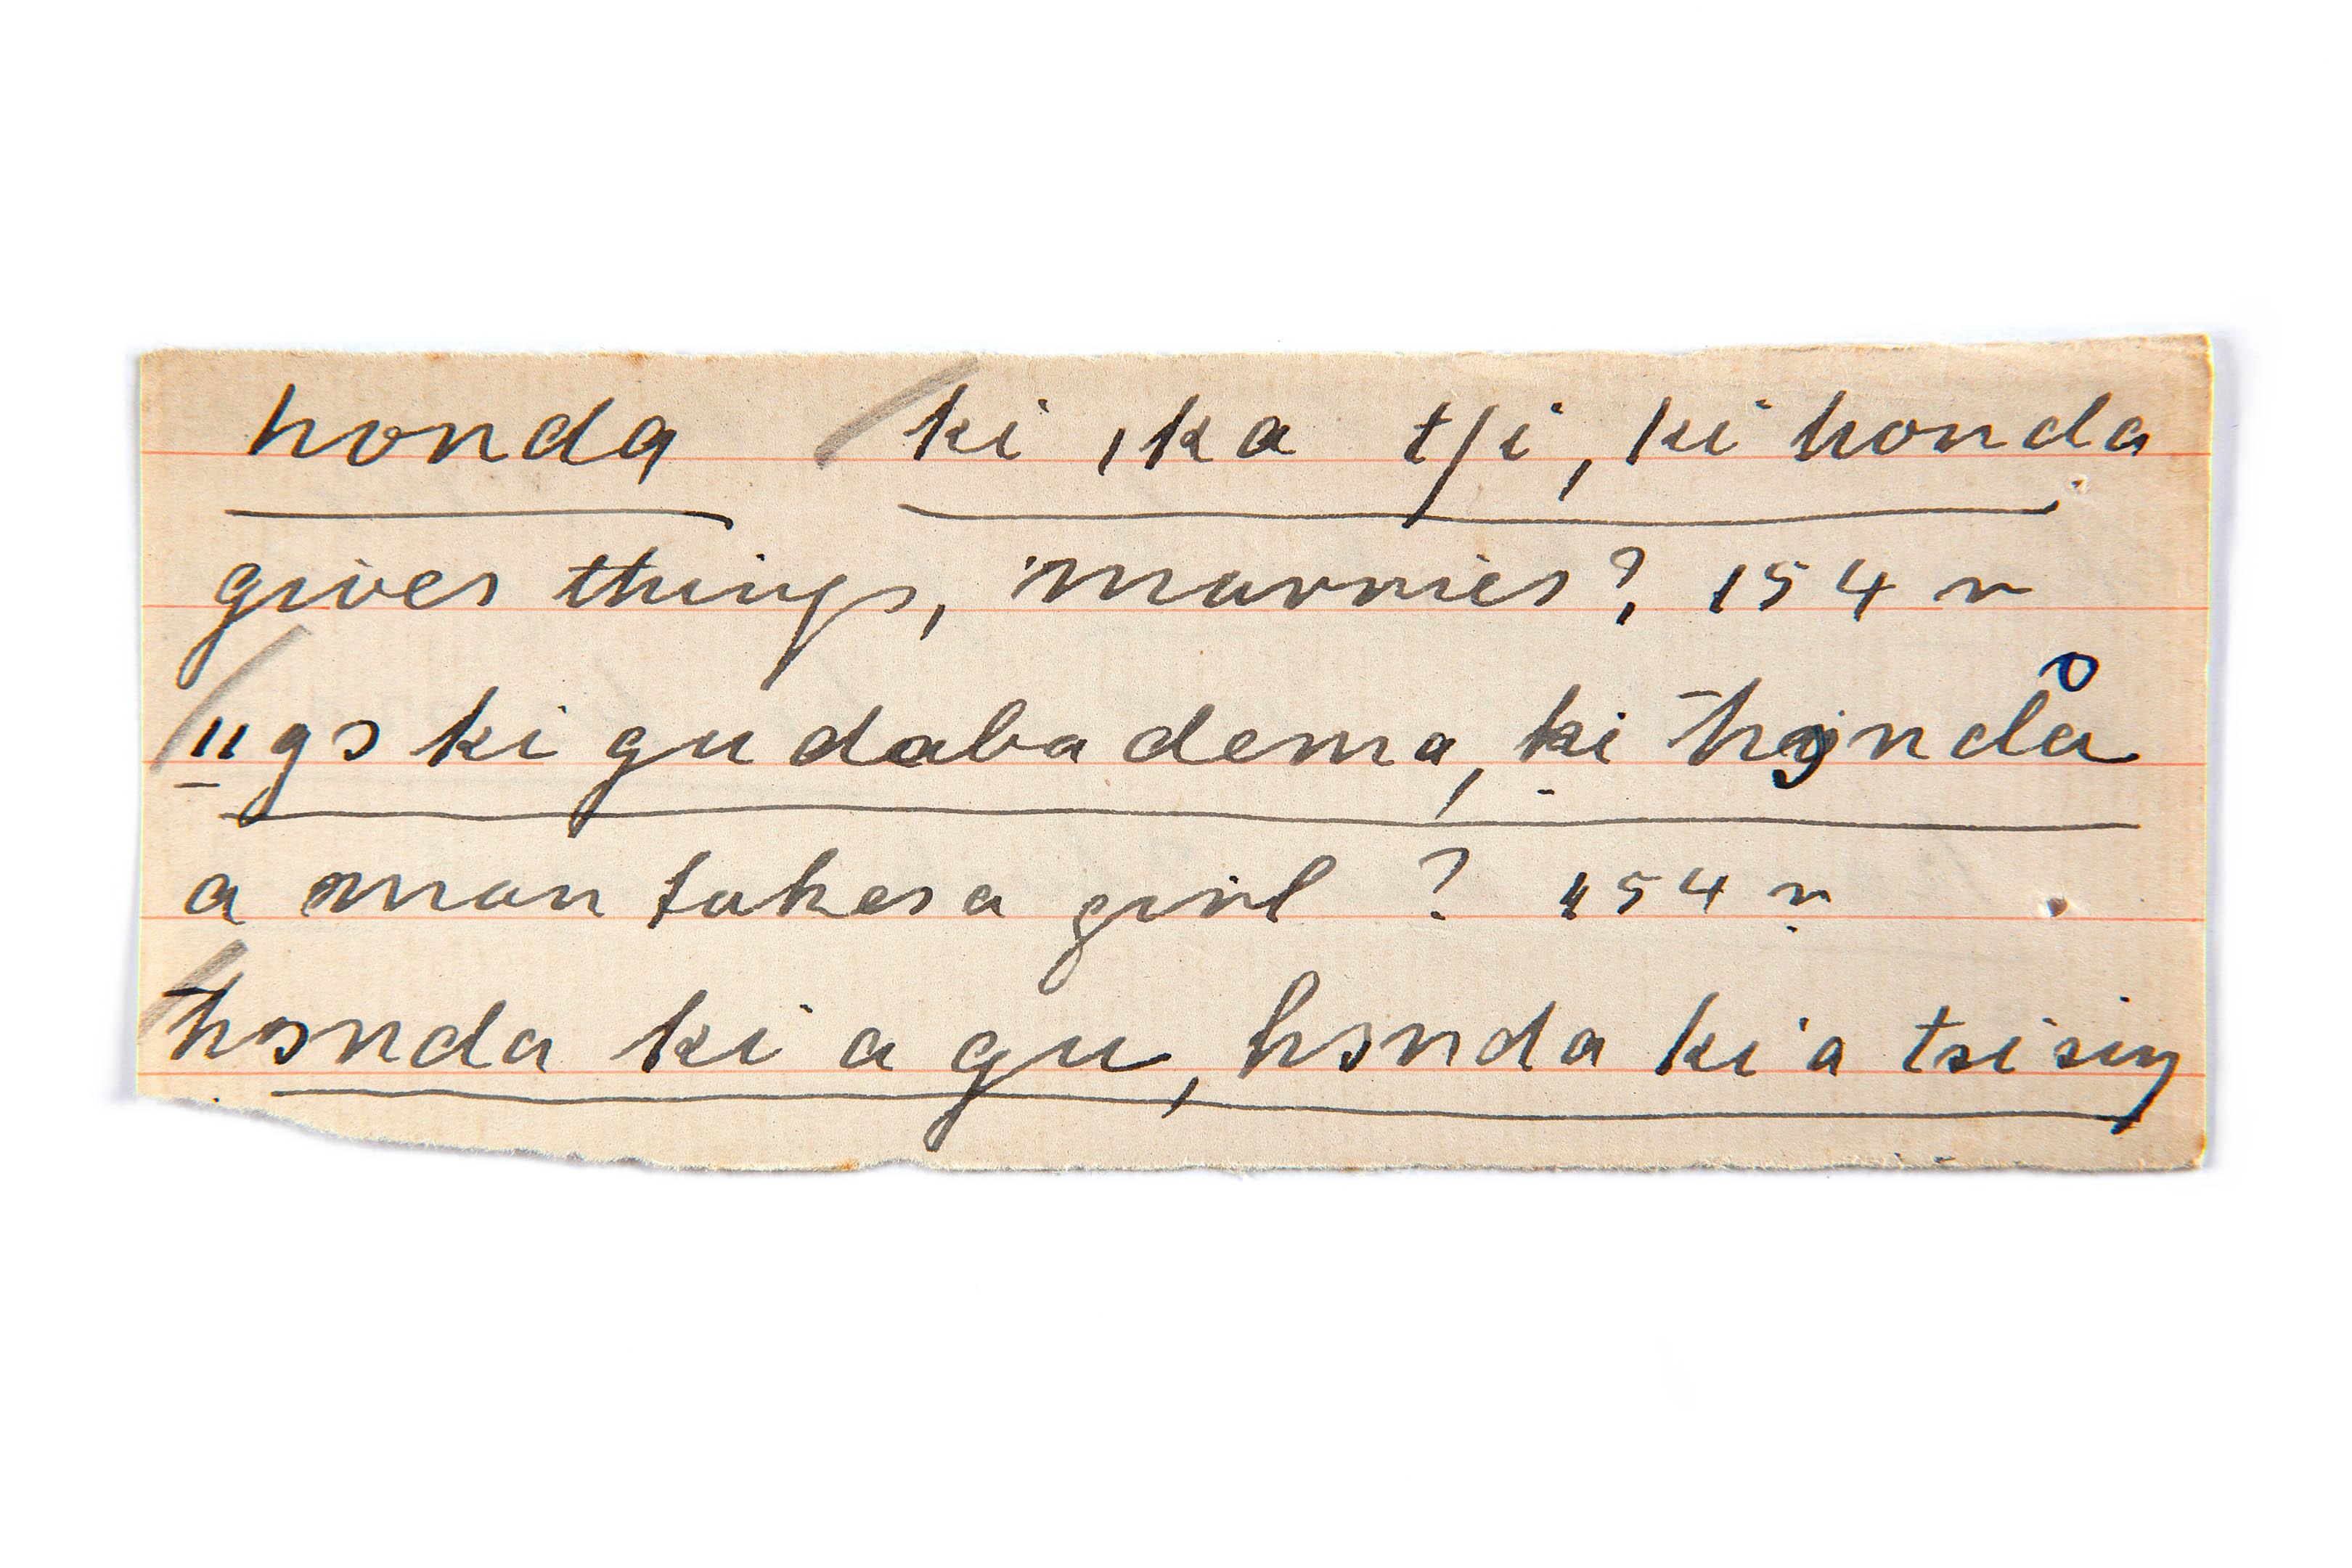 honda ki ıka tʃi, ki honda
gives things, marries? 154 r
ıı gɔ ki gu daba dema, ki hɔndå
a man takes a girl ? 154 r
hɔnda ki a gu, hɔnda ki a tsi siŋ